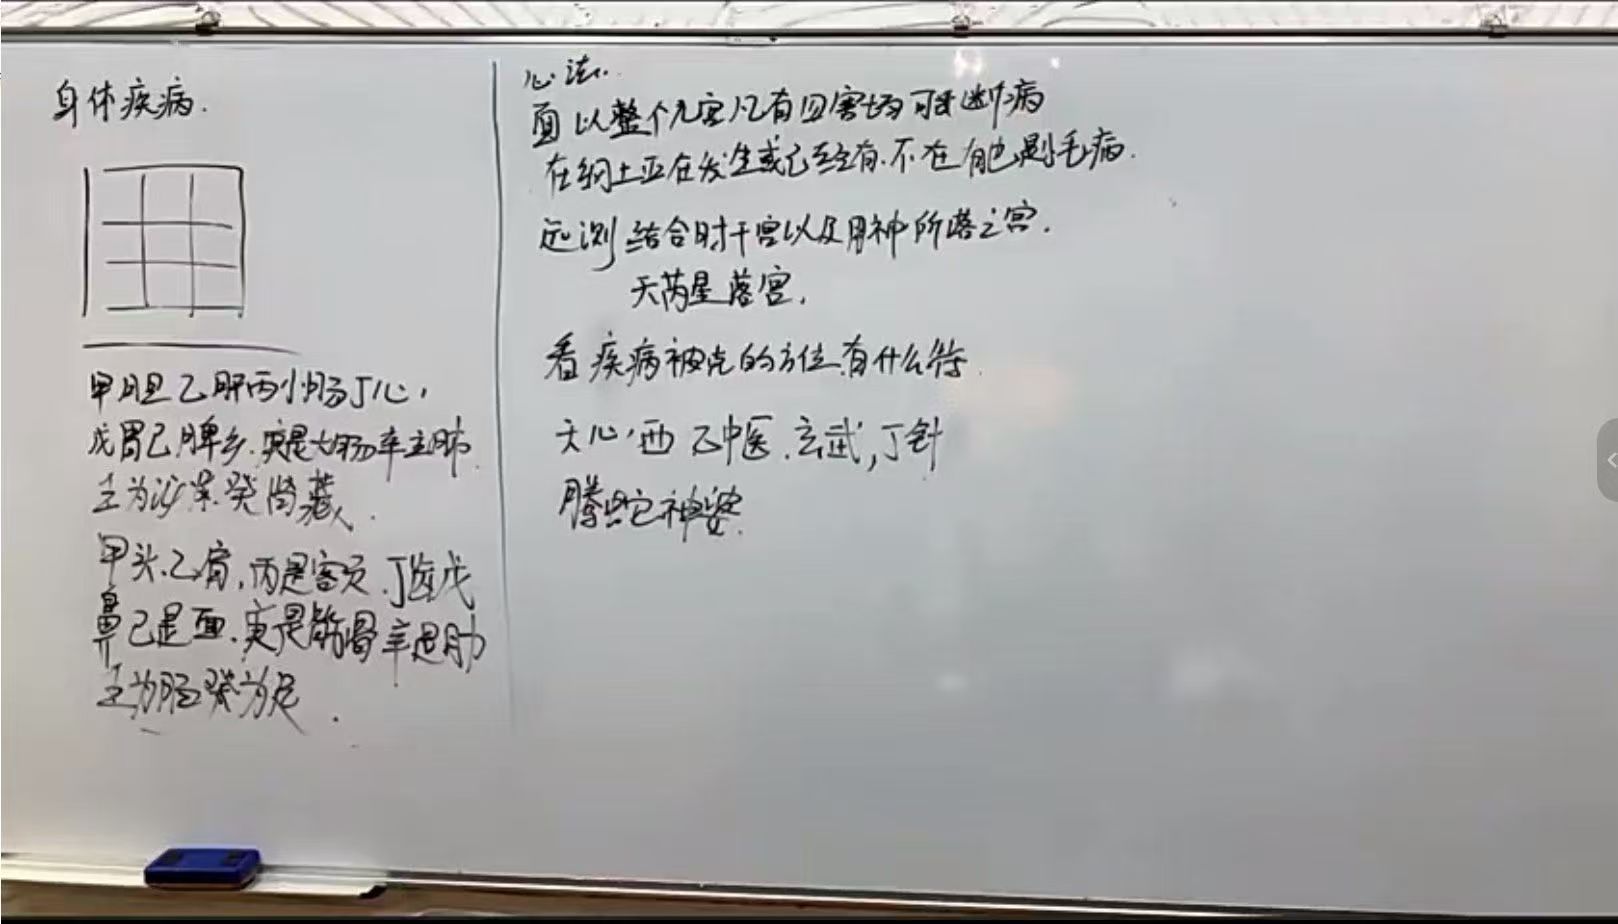 身体疾病.
甲胆乙肝丙小肠丁心,
戊胃己脾乡.庚是大肠辛主肺
壬为泌尿癸肾藏.
甲头.乙肩,丙是额.丁齿戊
鼻己是面.庚是筋骨辛是肋
壬为胫癸为足.
心法.
面以整个九宫凡有四害均可断病
在纲上正在发生或已经有.不在 也是毛病.
远测 结合时干宫以及用神所落之宫.
天芮星落宫.
看疾病被克的方位.有什么符
天心,西 乙中医.玄武,丁针
腾蛇神婆.